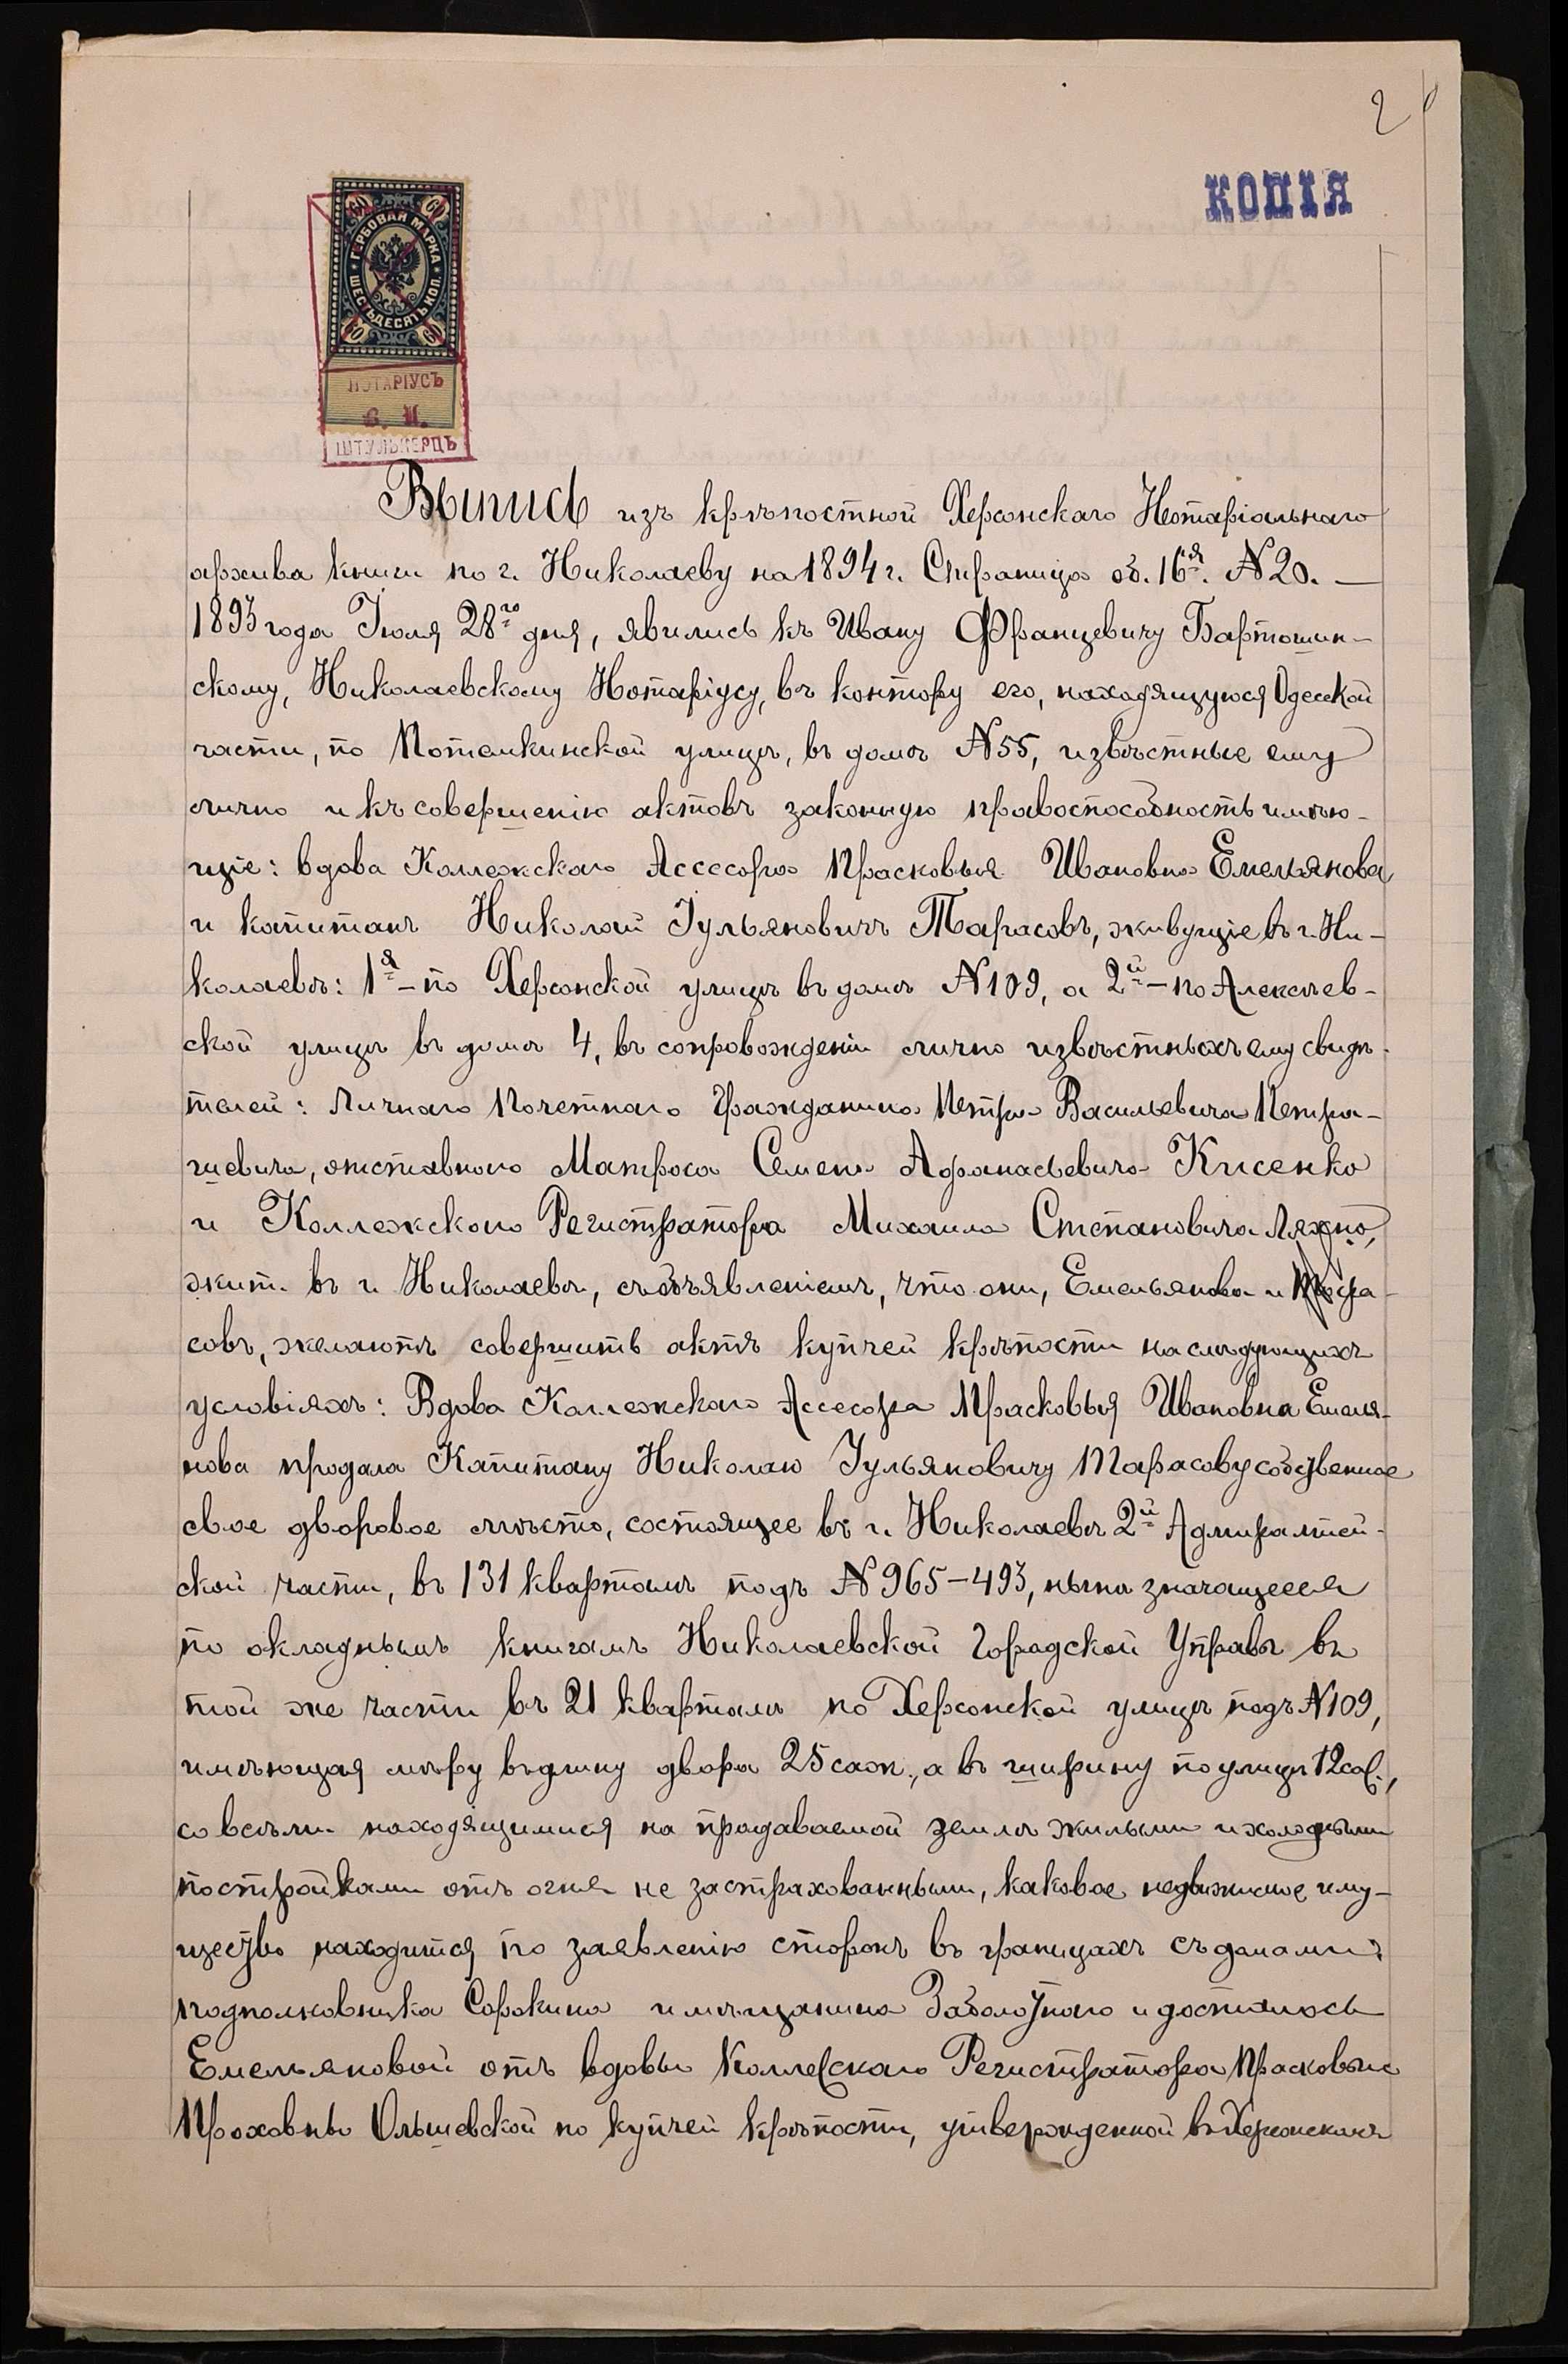 2
КОПІЯ
60 60
ГЕРБОВАЯ МАРКА
ШЕСТЬДЕСЯТЪ КОП.
60 60
НОТАРІУСЪ
С. И.
ШТУЛЬКЕРЦЪ
Выпись изъ крѣпостной Херсонскаго Нотаріальнаго
архива книги по г. Николаеву на 1894 г. Страница об. 16я. №20. —
1893 года Іюля 28го дня, явились къ Ивану Францевичу Бартошин-
скому, Николаевскому Нотаріусу, въ контору его, находящуюся Одесской
части, по Потемкинской улицѣ, въ домѣ №55, извѣстные ему
лично и къ совершенію актовъ законную правоспособность имѣю-
щіе: вдова Коллежскаго Ассесора Прасковья Ивановна Емельянова
и капитанъ Николай Іульяновичъ Тарасовъ, живущіе въ г. Ни-
колаевѣ: 1я – по Херсонской улицѣ въ домѣ №109, а 2й – по Алексѣев-
ской улицѣ въ домѣ 4, въ сопровожденіи лично извѣстныхъ ему свидѣ-
телей: Личнаго Почетнаго Гражданина Петра Васильевича Петра-
шевича, отставного Матроса Семена Афанасьевича Кисенко
и Коллежскаго Регистратора Михаила Степановича
жит. въ г. Николаевѣ, съ объявленіемъ, что они, Емельянова и Тара-
совъ, желаютъ совершить актъ купчей крѣпости на слѣдующихъ
условіяхъ: Вдова Коллежскаго Ассесора Прасковья Ивановна Емеля-
нова продала Капитану Николаю Іульяновичу Тарасову собственное
свое дворовое мѣсто, состоящее въ г. Николаевѣ 2й Адмиралтей-
ской части, въ 131 кварталѣ подъ №965–493, нынѣ значащееся
по окладнымъ книгамъ Николаевской Городской Управы въ
той же части въ 21 кварталѣ по Херсонской улицѣ подъ №109,
имѣющая мѣру въ длину двора 25 саж., а въ ширину по улицѣ 12 саж.,
со всѣми находящимися на продаваемой землѣ жилыми и холодными
постройками отъ огня не застрахованными, каковое недвижимое иму-
щество находится по заявленію сторонъ въ границахъ съ домами:
подполковника Сорокина и мѣщанина Заболотнаго и досталось
Емельяновой отъ вдовы Коллежскаго Регистратора Прасковьи
Проховны Ольшевской по купчей крѣпости, утвержденной въ Херсонскомъ